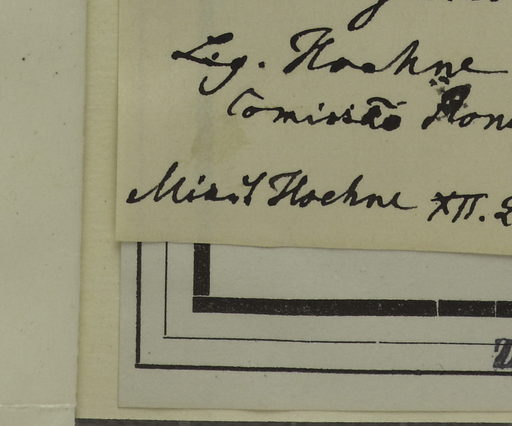 Leg. Hoehne
Comissão
Misit Hoehne XII.